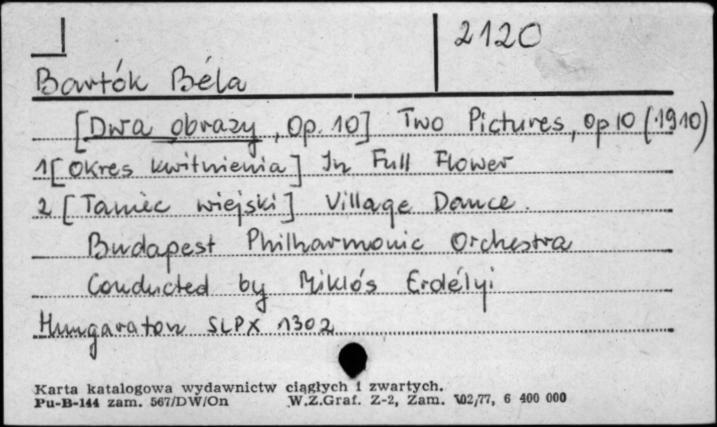 2120
Bartók Béla
[Dwa obrazy, Op. 10] Two Pictures, op 10 (1910)
1 [Okres kwitnienia] In Full Flower
2 [Taniec wiejski] Village Dance.
Budapest Philharmonic Orchestra
Conducted by Miklós Erdélyi
Hungaraton SLPX 1302
Karta katalogowa wydawnictw ciągłych i zwartych.
Pu-B-144 zam. 567/DW/On W.Z.Graf. Z-2, Zam. 102/77, 6 400 000